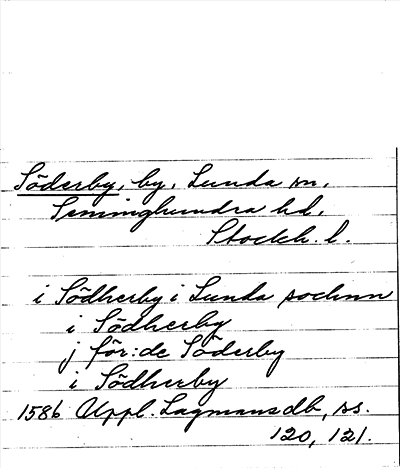 Söderby, by, Lunda sn,
Seminghundra hd,
Stockh. l.
i Södherby i Lunda sochnn
i Södherby
j för:de Söderby
i Södherby
1586 Uppl. Lagmansdb, ss.
120, 121.